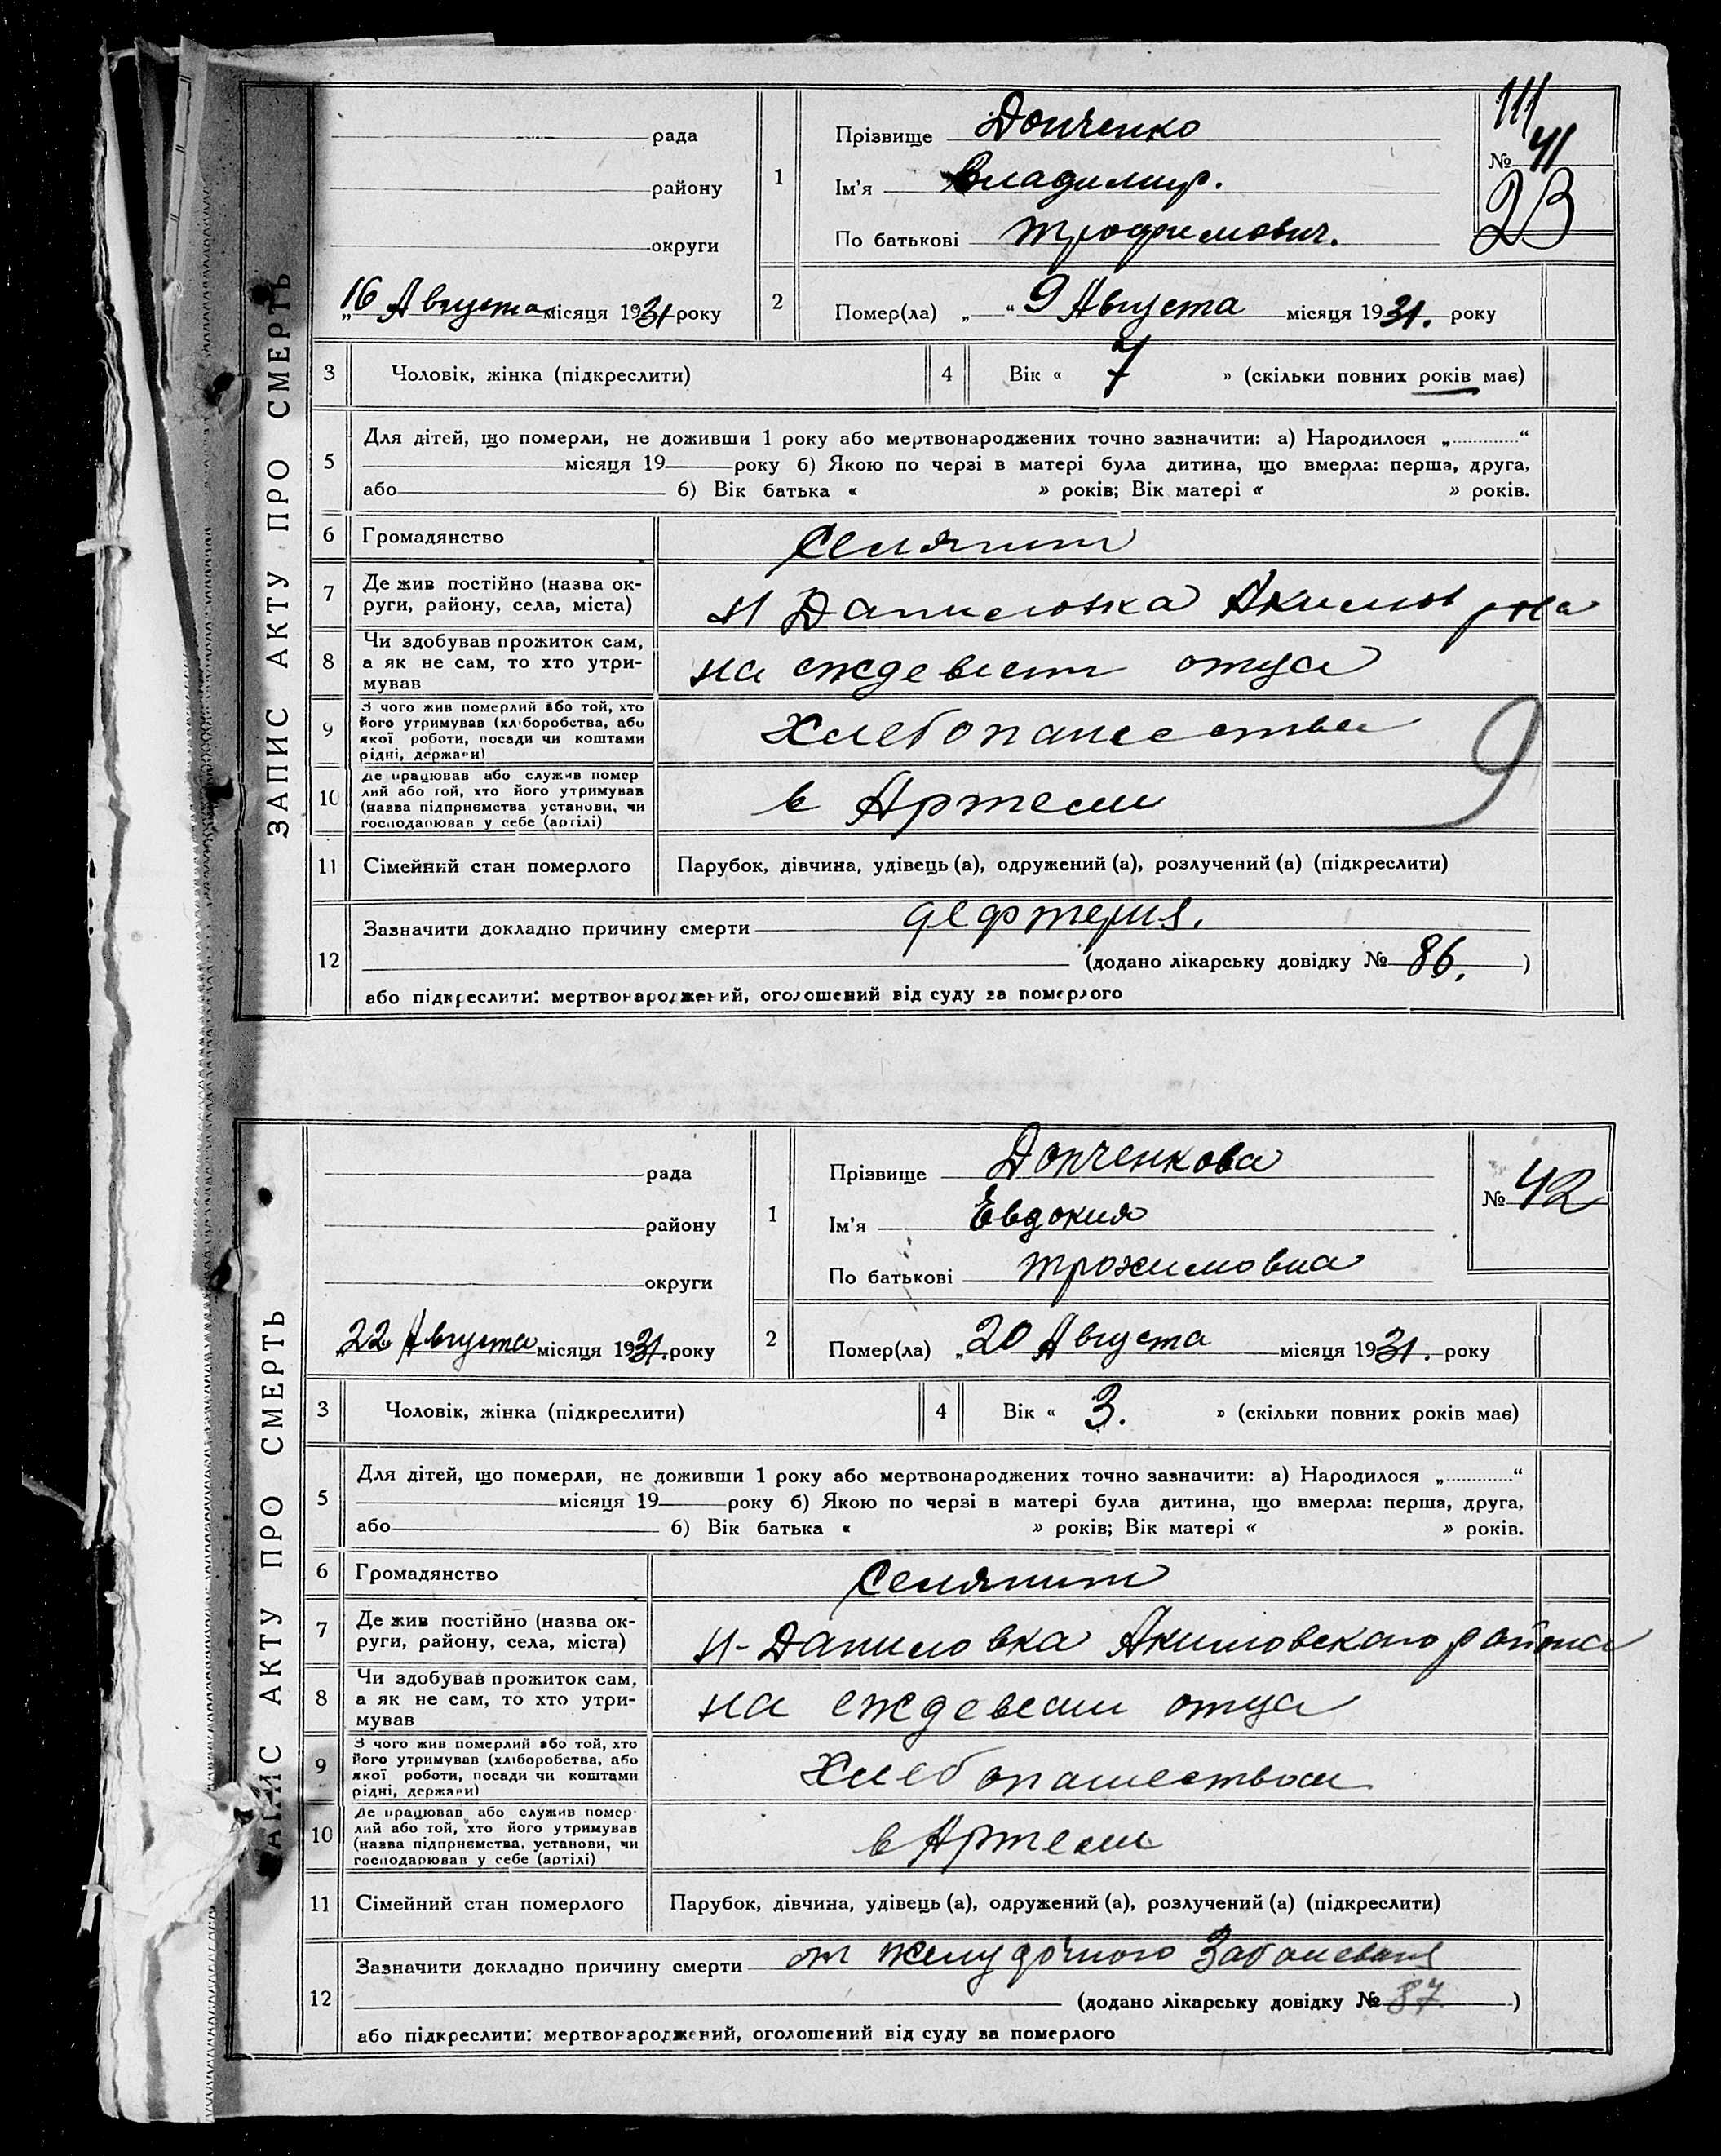 ЗАПИС АКТУ ПРО СМЕРТЬ
рада
району
округи
„16 Августа місяця 1931 року
1
Прізвище Донченко
Ім'я Владимир.
По батькові Трофимович.
111
№ 41
23
2
Помер(ла) „ “ 9 Августа місяця 1931. року
3
Чоловік, жінка (підкреслити)
4
Вік « 7 » (скільки повних років має)
5
Для дітей, що померли, не доживши 1 року або мертвонароджених точно зазначити: а) Народилося „............“
місяця 19 року б) Якою по черзі в матері була дитина, що вмерла: перша, друга,
або б) Вік батька « » років; Вік матері « » років.
6
Громадянство
Селянин
7
Де жив постійно (назва ок-
руги, району, села, міста)
Н Даниловка Акимов рна
8
Чи здобував прожиток сам,
а як не сам, то хто утри-
мував
на ждевении отца
9
З чого жив померлий або той, хто
його утримував (хліборобства, або
якої роботи, посади чи коштами
рідні, держави)
Хлебопашества
9
10
Де працював або служив помер
лий або той, хто його утримував
(назва підприємства установи, чи
господарював у себе (артілі)
в Артели
11
Сімейний стан померлого
Парубок, дівчина, удівець (а), одружений (а), розлучений (а) (підкреслити)
12
Зазначити докладно причину смерти дефтерия.
(додано лікарську довідку № 86. )
або підкреслити: мертвонароджений, оголошений від суду за померлого
ЗАПИС АКТУ ПРО СМЕРТЬ
рада
району
округи
22 Августа місяця 1931. року
1
Прізвище Донченкова
Ім'я Евдокия
По батькові Трохимовна
№ 42
2
Помер(ла) „20 Августа місяця 1931. року
3
Чоловік, жінка (підкреслити)
4
Вік « 3. » (скільки повних років має)
5
Для дітей, що померли, не доживши 1 року або мертвонароджених точно зазначити: а) Народилося „............“
місяця 19 року б) Якою по черзі в матері була дитина, що вмерла: перша, друга,
або б) Вік батька « » років; Вік матері « » років.
6
Громадянство
Селянин
7
Де жив постійно (назва ок-
руги, району, села, міста)
Н-Даниловка Акимовского района
8
Чи здобував прожиток сам,
а як не сам, то хто утри-
мував
на еждевении отца
9
З чого жив померлий або той, хто
його утримував (хліборобства, або
якої роботи, посади чи коштами
рідні, держави)
Хлебопашеством
10
Де працював або служив помер-
лий або той, хто його утримував
(назва підприємства, установи, чи
господарював у себе (артілі)
в Артели
11
Сімейний стан померлого
Парубок, дівчина, удівець (а), одружений (а), розлучений (а) (підкреслити)
12
Зазначити докладно причину смерти от желудочного Заболевания
(додано лікарську довідку № 87 )
або підкреслити: мертвонароджений, оголошений від суду за померлого